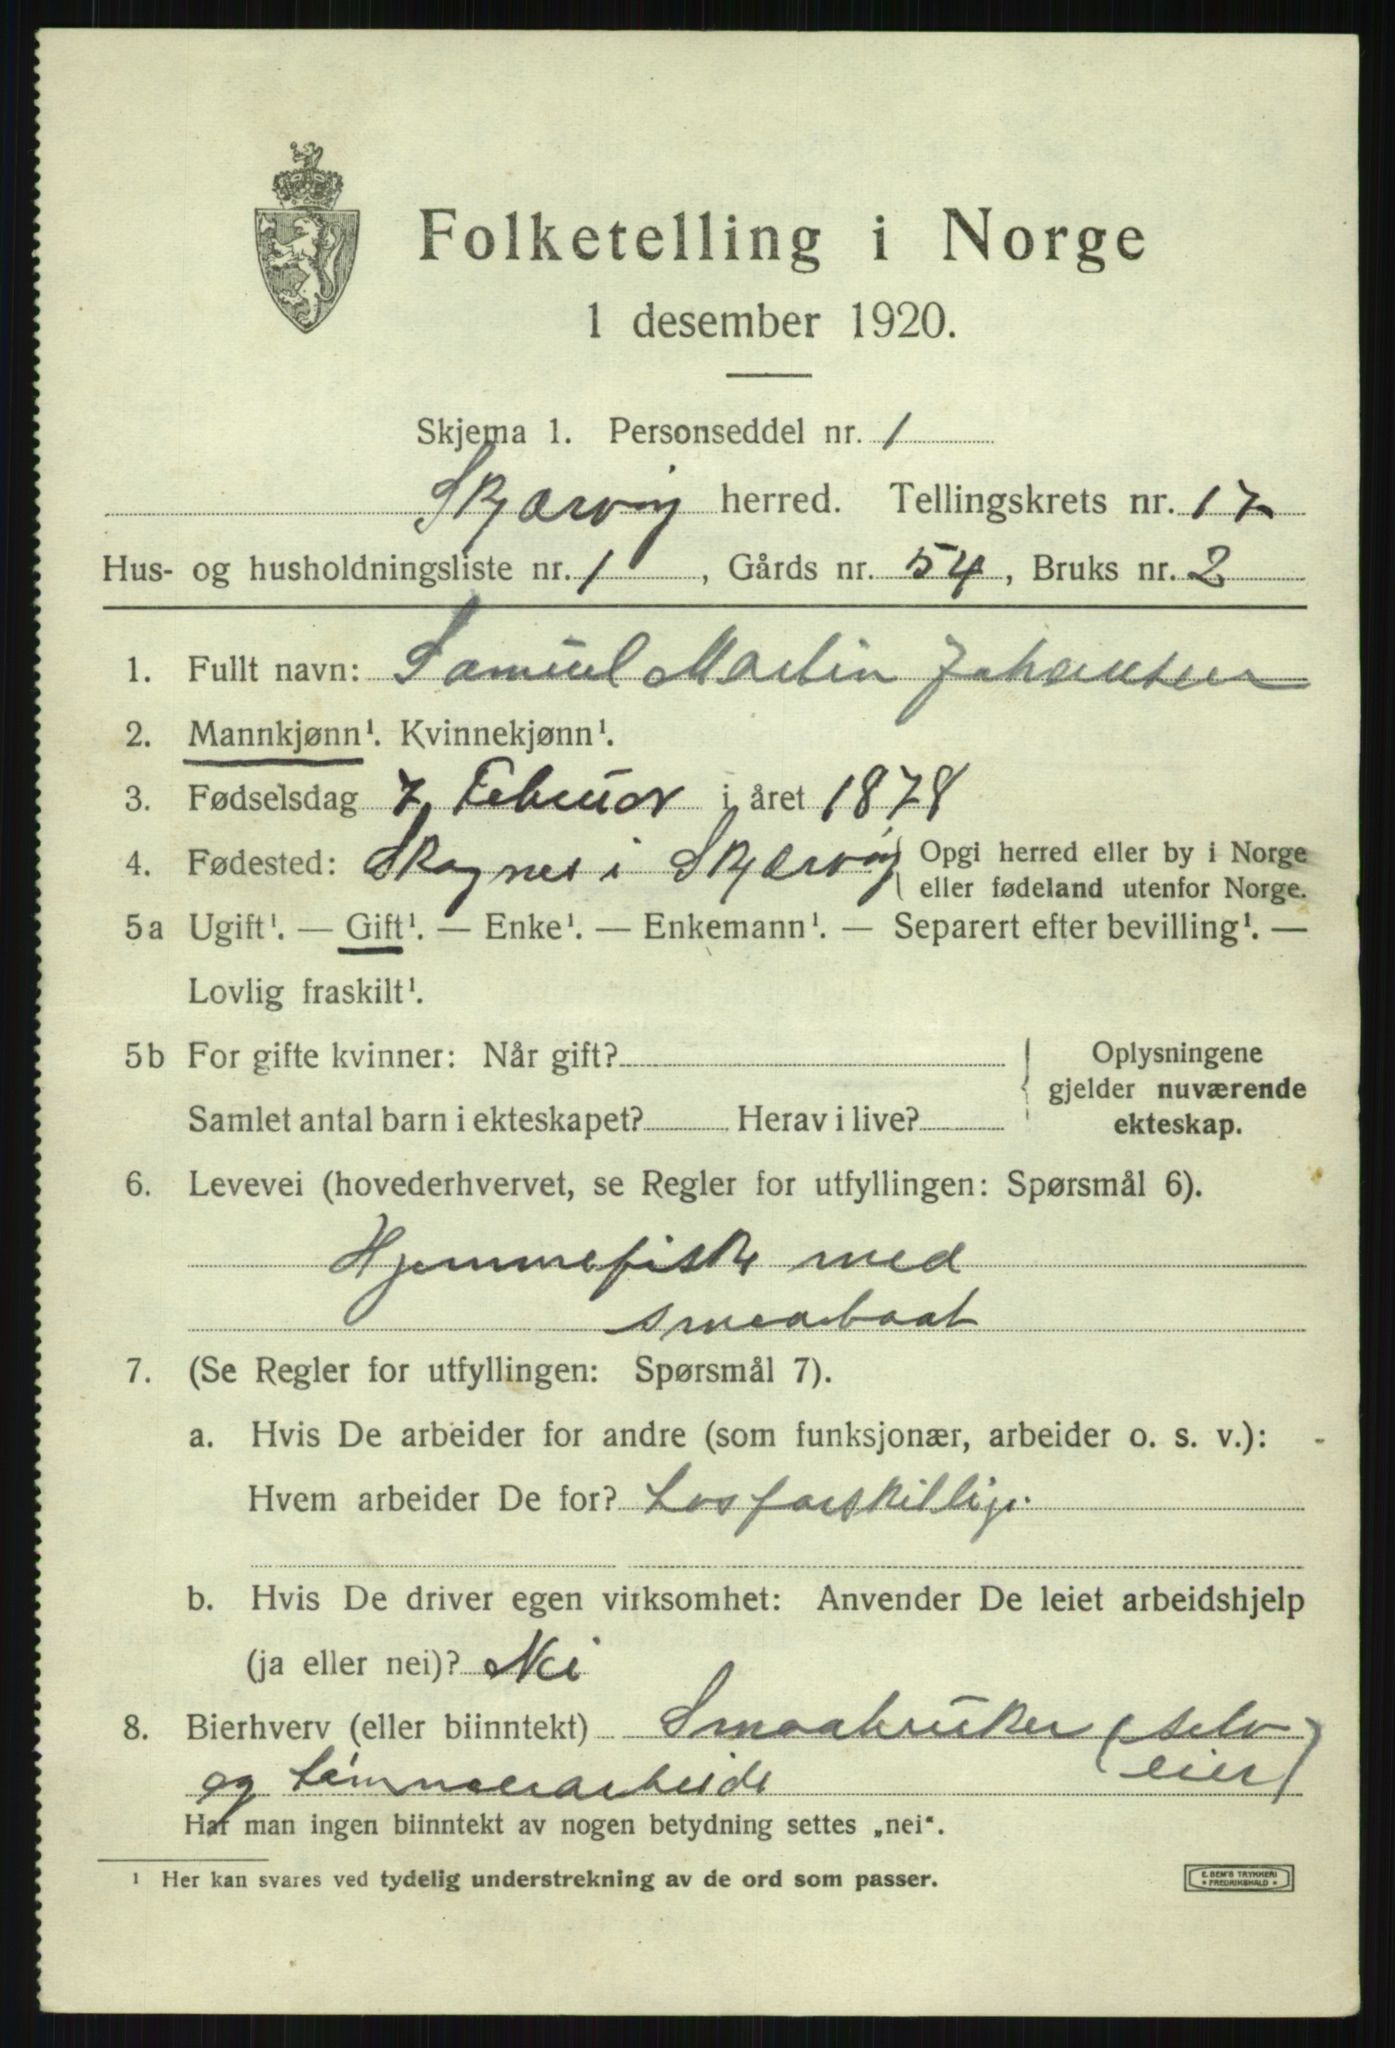 Folketelling i Norge
1 desember 1920.
Skjema 1. Personseddel nr. 1
Skjærvøy herred. Tellingskrets nr. 17
Hus- og husholdningsliste nr. 1, Gårds nr. 54, Bruks nr. 2
1. Fullt navn: Samuel Martin Johansen
2. Mannkjønn¹. Kvinnekjønn¹.
3. Fødselsdag 7 Februar i året 1878
4. Fødested: i Skjærvøy Opgi herred eller by i Norge
eller fødeland utenfor Norge.
5a Ugift¹. — Gift¹. — Enke¹. — Enkemann¹. — Separert efter bevilling¹. —
Lovlig fraskilt¹.
5b For gifte kvinner: Når gift? Oplysningene
gjelder nuværende
Samlet antal barn i ekteskapet? Herav i live? ekteskap.
6. Levevei (hovederhvervet, se Regler for utfyllingen: Spørsmål 6).
Hjemmefiske med
smaabaat
7. (Se Regler for utfyllingen: Spørsmål 7).
a. Hvis De arbeider for andre (som funksjonær, arbeider o. s. v.):
Hvem arbeider De for? Los forskillig.
b. Hvis De driver egen virksomhet: Anvender De leiet arbeidshjelp
(ja eller nei)? Nei
8. Bierhverv (eller biinntekt) Smaabruker (selv
og tømmerarbeide eier)
Har man ingen biinntekt av nogen betydning settes „nei".
¹ Her kan svares ved tydelig understrekning av de ord som passer.
E. SEM'S TRYKKERI
* FREDRIKSHALD *